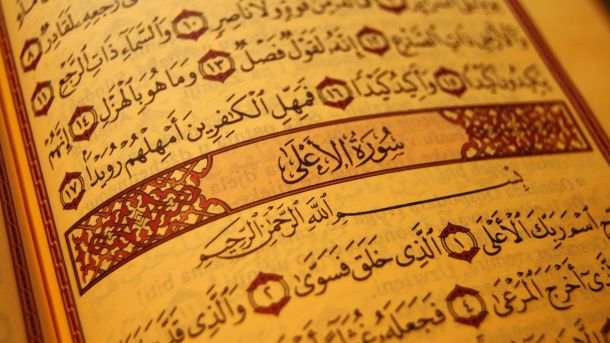 رَجْعِهِ لَقَادِرٌ ٨
قُوَّةٍ وَلَا نَاصِرٍ ١٠ وَالسَّمَاءِ ذَاتِ الرَّجْعِ ١١
وَالْأَرْضِ ذَاتِ الصَّدْعِ ١٢ إِنَّهُ لَقَوْلٌ فَصْلٌ ١٣ وَمَا هُوَ بِالْهَزْلِ ١٤ إِنَّهُمْ
يَكِيدُونَ كَيْدًا ١٥ وَأَكِيدُ كَيْدًا ١٦ فَمَهِّلِ الْكَٰفِرِينَ أَمْهِلْهُمْ رُوَيْدًا ١٧
سُورَةُ الْأَعْلَى
بِسْمِ اللَّهِ الرَّحْمَٰنِ الرَّحِيمِ
اسْمَ رَبِّكَ الْأَعْلَى ١ الَّذِي خَلَقَ فَسَوَّىٰ ٢ وَالَّذِي قَدَّرَ
أَخْرَجَ الْمَرْعَىٰ ٤ فَجَعَلَهُ غُثَاءً